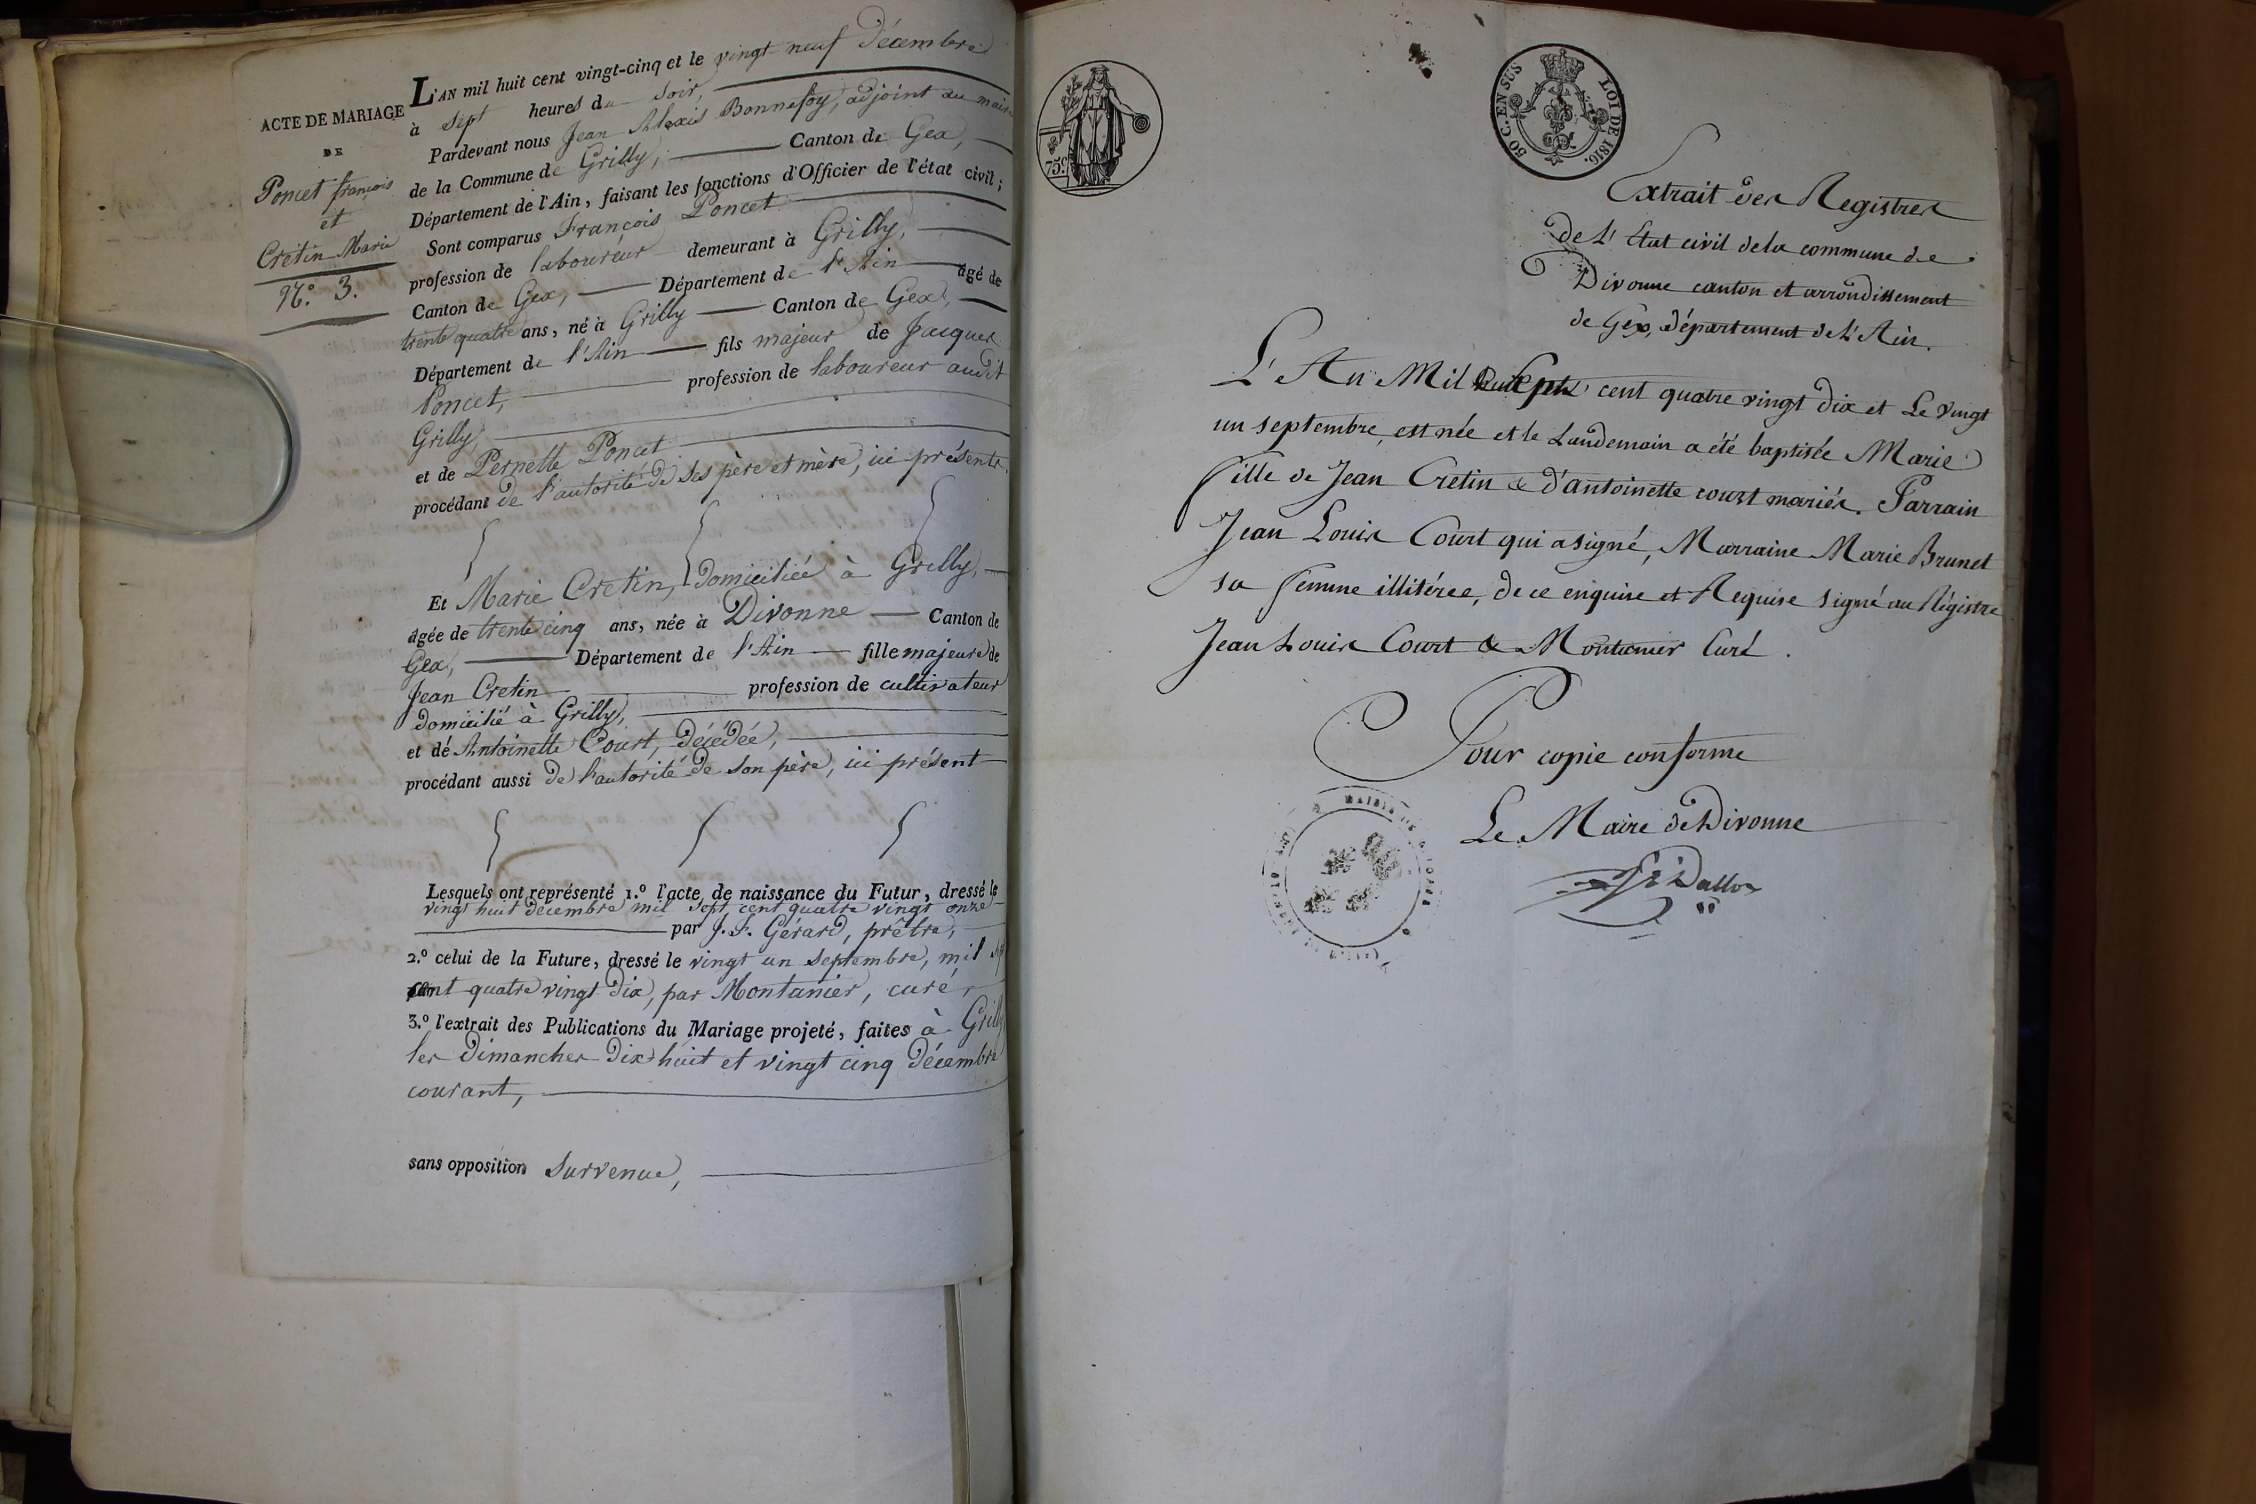 ACTE DE MARIAGE
DE
Poncet françois
et
Cretin Marie
N.° 3.
L'AN mil huit cent vingt-cinq et le vingt neuf Décembre
à sept heures du soir,
Pardevant nous Jean Alexis Bonnefoy, adjoint au maire
de la Commune de Grilly, Canton de Gex,
Département de l'Ain, faisant les fonctions d'Officier de l'état civil ;
Sont comparus François Poncet
profession de laboureur demeurant à Grilly,
Canton de Gex, Département de l'Ain âgé de
trente quatre ans, né à Grilly Canton de Gex,
Département de l'Ain fils majeur de Jacques
Poncet, profession de laboureur audit
Grilly,
et de Pernette Poncet
procédant de l'autorité de ses père et mère, ici présents.
Et Marie Cretin, domiciliée à Grilly,
âgée de trente cinq ans, née à Divonne Canton de
Gex, Département de l'Ain fille majeure de
Jean Cretin profession de cultivateur
domicilié à Grilly,
et de Antoinette Court, décédée,
procédant aussi de l'autorité de son père, ici présent
Lesquels ont représenté 1.° l'acte de naissance du Futur, dressé le
vingt huit décembre mil sept cent quatre vingt onze
par J. F. Gérard, prêtre,
2.° celui de la Future, dressé le vingt un septembre, mil sept
cent quatre vingt dix, par Montanier, curé,
3.° l'extrait des Publications du Mariage projeté, faites à Grilly
les dimanches dix huit et vingt cinq décembre
courant,
sans opposition survenue,
75c
50 C. EN SUS
LOI DE 1816.
Extrait des Registres
de L'État civil de la commune de
Divonne canton et arrondissement
de Gex, département de L'Ain.
L'An Mil Sept cent quatre vingt dix et Le vingt
un septembre, est née et le Landemain a été baptisée Marie
fille de Jean Cretin & d'antoinette court mariés. Parrain
Jean Louis Court qui a signé, Marraine Marie Brunet
sa femme illitérée, de ce enquise et Requise signé au Régistre
Jean Louis Court & Montanier Curé.
Pour copie conforme
Le Maire de Divonne